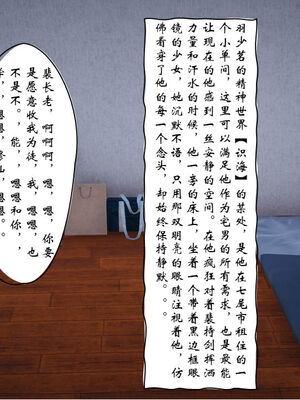 羽少茗的精神世界【识海】的某处，是他在七尾市租住的一
个小单间，这里可以满足他作为宅男的所有需求，也是最能
让现在的他感到一丝安静的空间。在他疯狂对着裴持剑挥洒
力量和汗水的时候，他一旁的床上，坐着一个带着黑边框眼
镜的少女，她沉默不语，只用那双明亮的眼睛注视着他，仿
佛看穿了他的每一个念头，却始终保持静默...
裴长老，啊啊啊，你要
是愿意收我为徒，我，嗯嗯，也
不是不。能，嗯嗯和你，
，嗯嗯，嗯嗯。